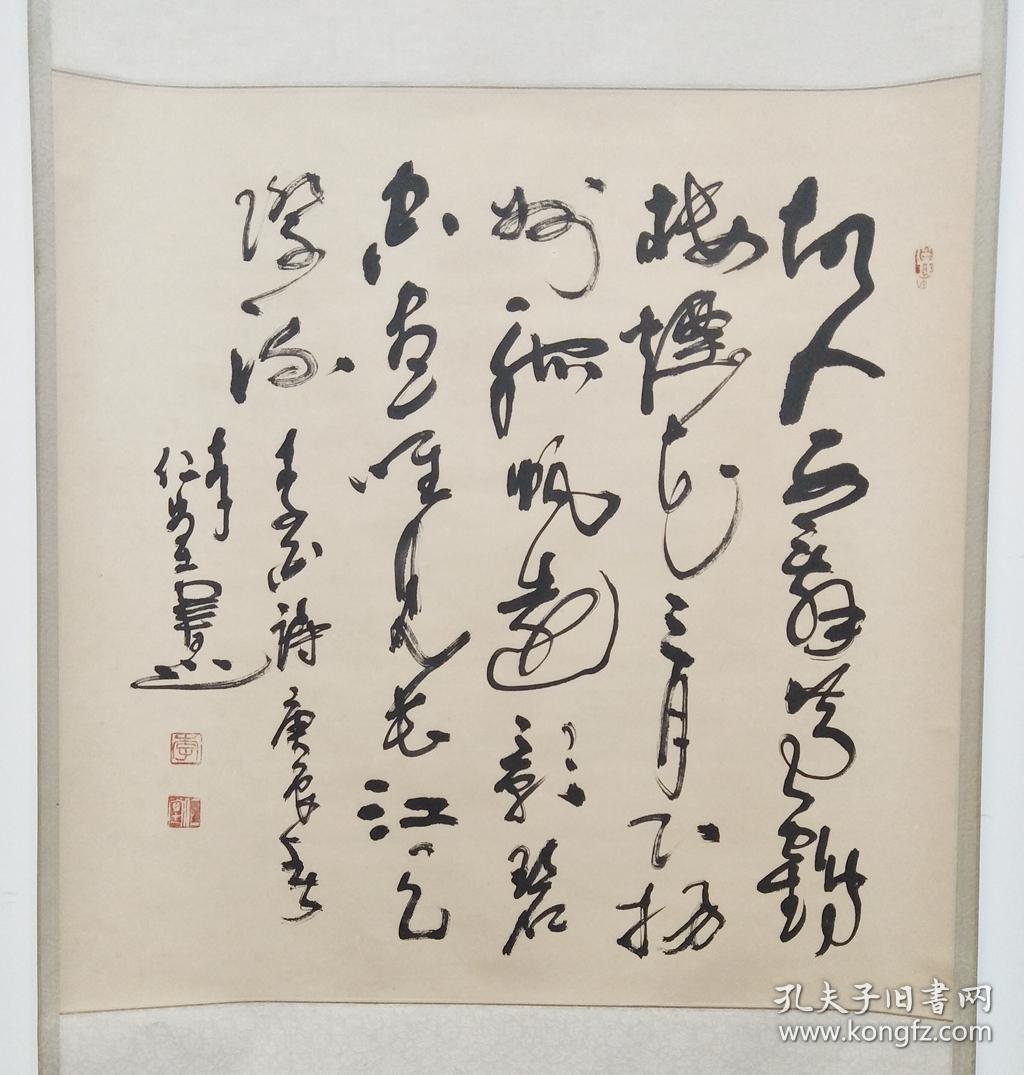 故人西辭黄鶴
楼煙花三月下揚
州孤帆遠影碧
空盡唯見長江天
際流
李白詩庚辰春
李仁堂書
李
仁堂
孔夫子旧書网
www.kongfz.com